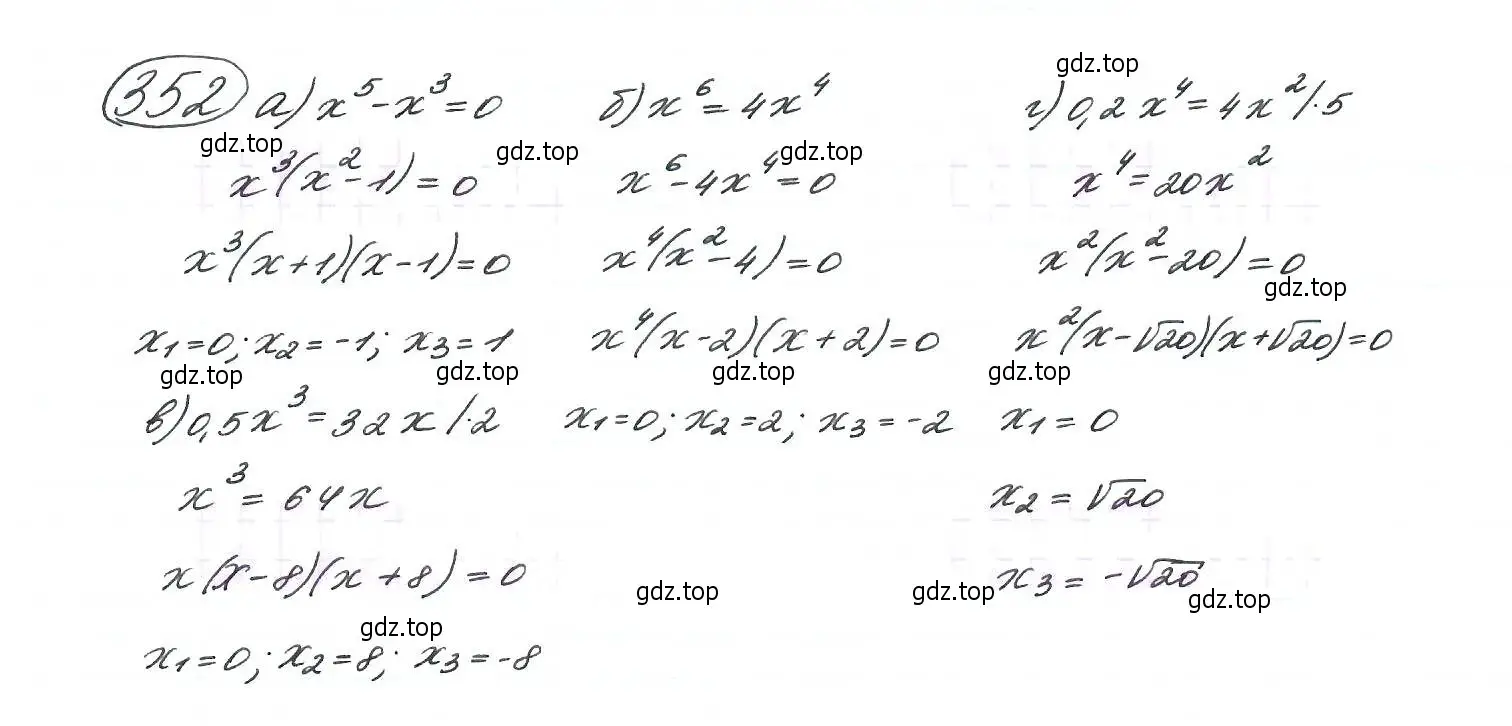 352 а) x⁵ - x³ = 0
x³(x² - 1) = 0
x³(x + 1)(x - 1) = 0
x₁ = 0; x₂ = -1; x₃ = 1
б) x⁶ = 4x⁴
x⁶ - 4x⁴ = 0
x⁴(x² - 4) = 0
x⁴(x - 2)(x + 2) = 0
x₁ = 0; x₂ = 2; x₃ = -2
в) 0,5x³ = 32x /·2
x³ = 64x
x(x - 8)(x + 8) = 0
x₁ = 0; x₂ = 8; x₃ = -8
г) 0,2x⁴ = 4x² /·5
x⁴ = 20x²
x²(x² - 20) = 0
x²(x - √20)(x + √20) = 0
x₁ = 0
x₂ = √20
x₃ = -√20
gdz.top
gdz.top
gdz.top
gdz.top
gdz.top
gdz.top
gdz.top
gdz.top
gdz.top
gdz.top
gdz.top
gdz.top
gdz.top